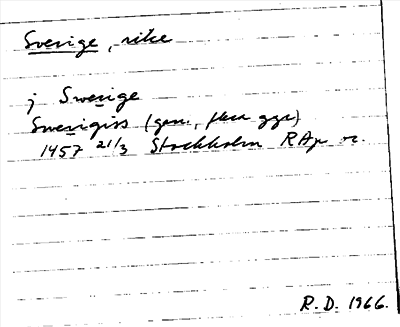 Sverige, rike
j Swerige
Swerigiss (gen., flera ggr)
1457 21/3 Stockholm RAp or.
R.D. 1966.